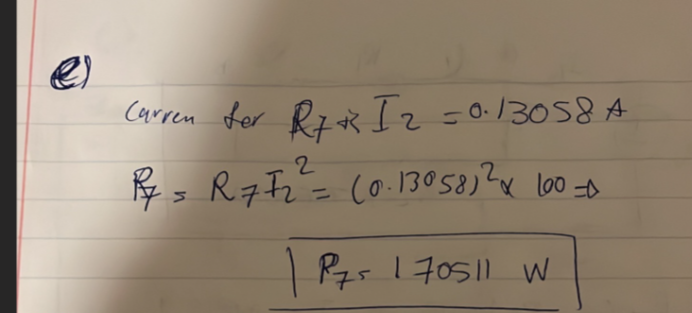 e)
Curren for R7 is I2 = 0.13058 A
P7 = R7 I2² = (0.13058)² x 100 ⇒
P7 = 1 70511 W